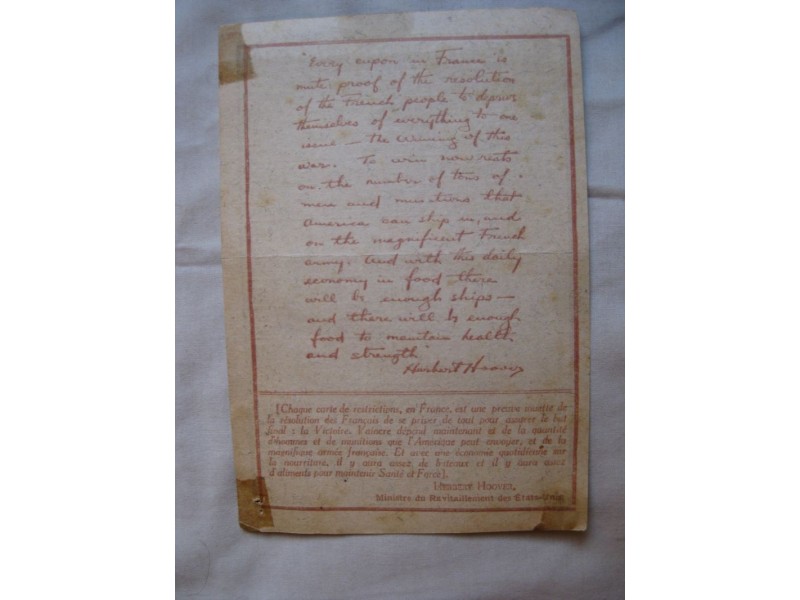 "Every cupon in France is
mute proof of the resolution
of the French people to deprive
themselves of everything to one
issue — the winning of this
war. To win now rests
on the number of tons of
men and munitions that
America can ship in, and
on the magnificent French
army. And with this daily
economy in food there
will be enough ships —
and there will be enough
food to maintain health
and strength"
Herbert Hoover
[Chaque carte de restrictions, en France, est une preuve muette de
la résolution des Français de se priver de tout pour assurer le but
final : la Victoire. Vaincre dépend maintenant et de la quantité
d'hommes et de munitions que l'Amérique peut envoyer, et de la
magnifique armée française. Et avec une économie quotidienne sur
la nourriture, il y aura assez de bateaux et il y aura assez
d'aliments pour maintenir Santé et Force].
HERBERT HOOVER,
Ministre du Ravitaillement des États-Unis.